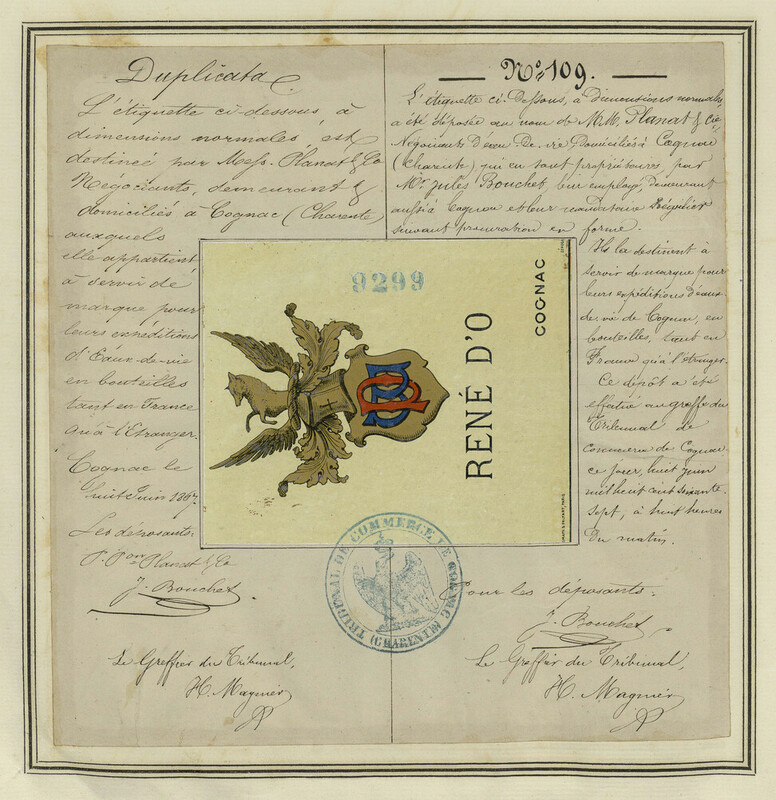 Duplicata
L'étiquette ci-dessous, à
dimensions normales, est
destinée par Mess. Planat & Co
Négociants, demeurant &
domiciliés à Cognac (Charente
auxquels
elle appartient
à servir de
marque pour
leurs expéditions
d'Eaux-de-vie
en bouteilles
tant en France
qu'à l'Etranger.
Cognac le
huit Juin 1867.
Les déposants.
P. Pon Planat & Co
J. Bouchet
Le Greffier du Tribunal,
H. Magnier
No 109.
L'étiquette ci-Dessous, à dimensions normales,
a été déposée au nom de M.M. Planat & Cie
Négociants d'eau De vie Domiciliés à Cognac
(Charente) qui en sont propriétaires, par
Mr Jules Bouchet, leur employé, Demeurant
aussi à Cognac et leur mandataire Régulier
suivant procuration en forme.
Ils la destinent à
servir de marque pour
leurs expéditions d'eaux
de vie de Cognac, en
bouteilles, tant en
France qu'à l'étranger.
Ce dépôt a été
effectué au greffe du
Tribunal de
Commerce de Cognac
ce jour, huit juin
mil huit cent soixante
sept, à huit heures
Du matin.
Pour les déposants.
J. Bouchet
Le Greffier du Tribunal,
H. Magnier
9299
RENÉ D'O
COGNAC
TRIBUNAL DE COMMERCE DE COGNAC
(CHARENTE)